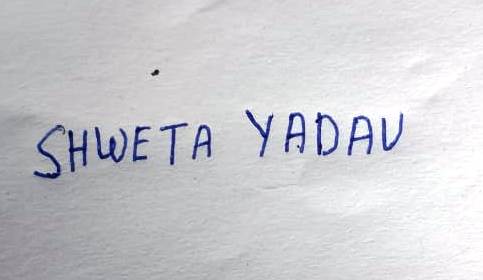 SHWETA YADAV